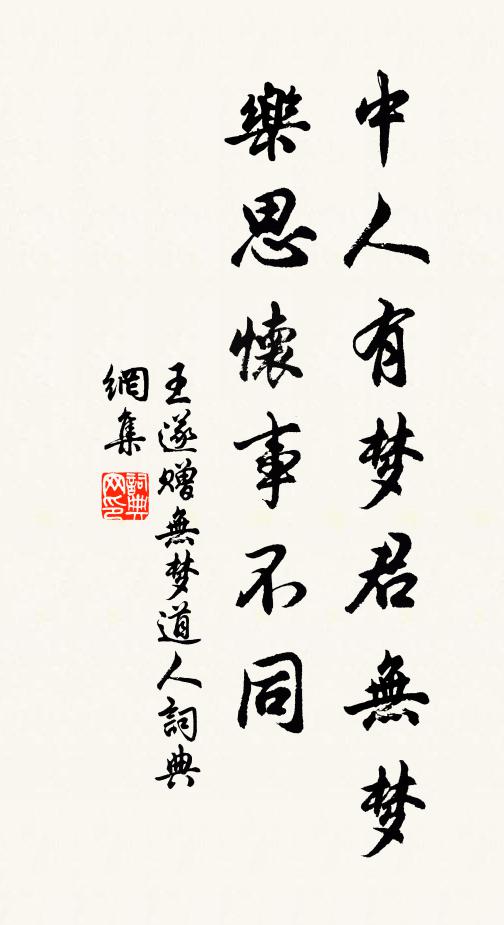 中人有梦君無梦
樂思懷事不同
王遂赠無梦道人詞典
網集
詞典网印